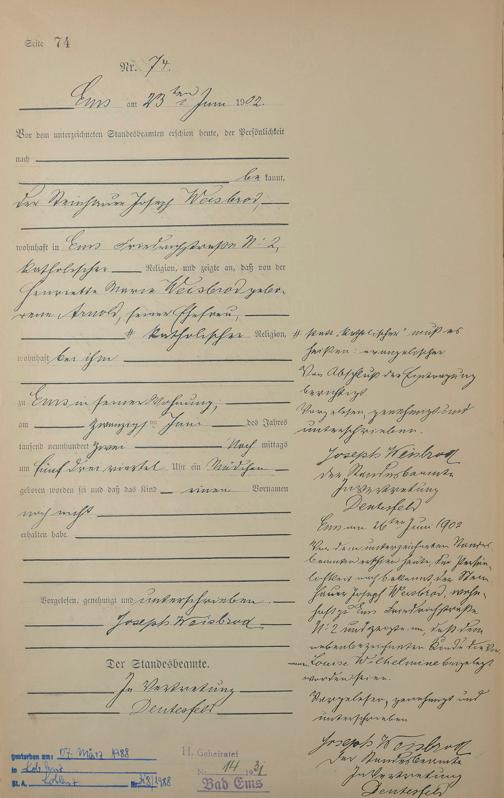 Seite 74
Nr. 74.
Ems am 23ten Juni 1902.
Vor dem unterzeichneten Standesbeamten erschien heute, der Persönlichkeit
nach
be kannt,
der Steinhauer Joseph Weisbrod,
wohnhaft in Ems Friedrichstraße No 2,
katholischer Religion, und zeigte an, daß von der
Henriette Marie Weisbrod gebo-
rene Arnold, seiner Ehefrau,
# katholischer Religion,
wohnhaft bei ihm
zu Ems in seiner Wohnung,
am zwanzigsten Juni des Jahres
tausend neunhundert zwei Nach mittags
um fünf drei viertel Uhr ein Mädchen
geboren worden sei und daß das Kind einen Vornamen
noch nicht
erhalten habe.
Vorgelesen, genehmigt und unterschrieben
Joseph Weisbrod
Der Standesbeamte.
In Vertretung
Deutesfeld
# statt "katholischer" muß es
heißen: evangelischer
Vor Abschluß der Eintragung
berichtigt
Vorgelesen, genehmigt und
unterschrieben.
Joseph Weisbrod
Der Standesbeamte
In Vertretung
Deutesfeld
Ems am 26ten Juni 1902
Vor dem unterzeichneten Standes-
beamten erschien heute, der Persön-
lichkeit nach bekannt, der Stein-
hauer Joseph Weisbrod, wohn-
haft zu Ems Friedrichstraße
No 2 und zeigte an, daß dem
nebenbezeichneten Kinde die Vor-
namen Louise Wilhelmine beigelegt
worden seien.
Vorgelesen, genehmigt und
unterschrieben
Joseph Weisbrod
Der Standesbeamte
In Vertretung
Deutesfeld
gestorben am: 17. März 1988
in
St. A. Nr. 1988
H. Geheiratet
Nr. 14 1931
Bad Ems